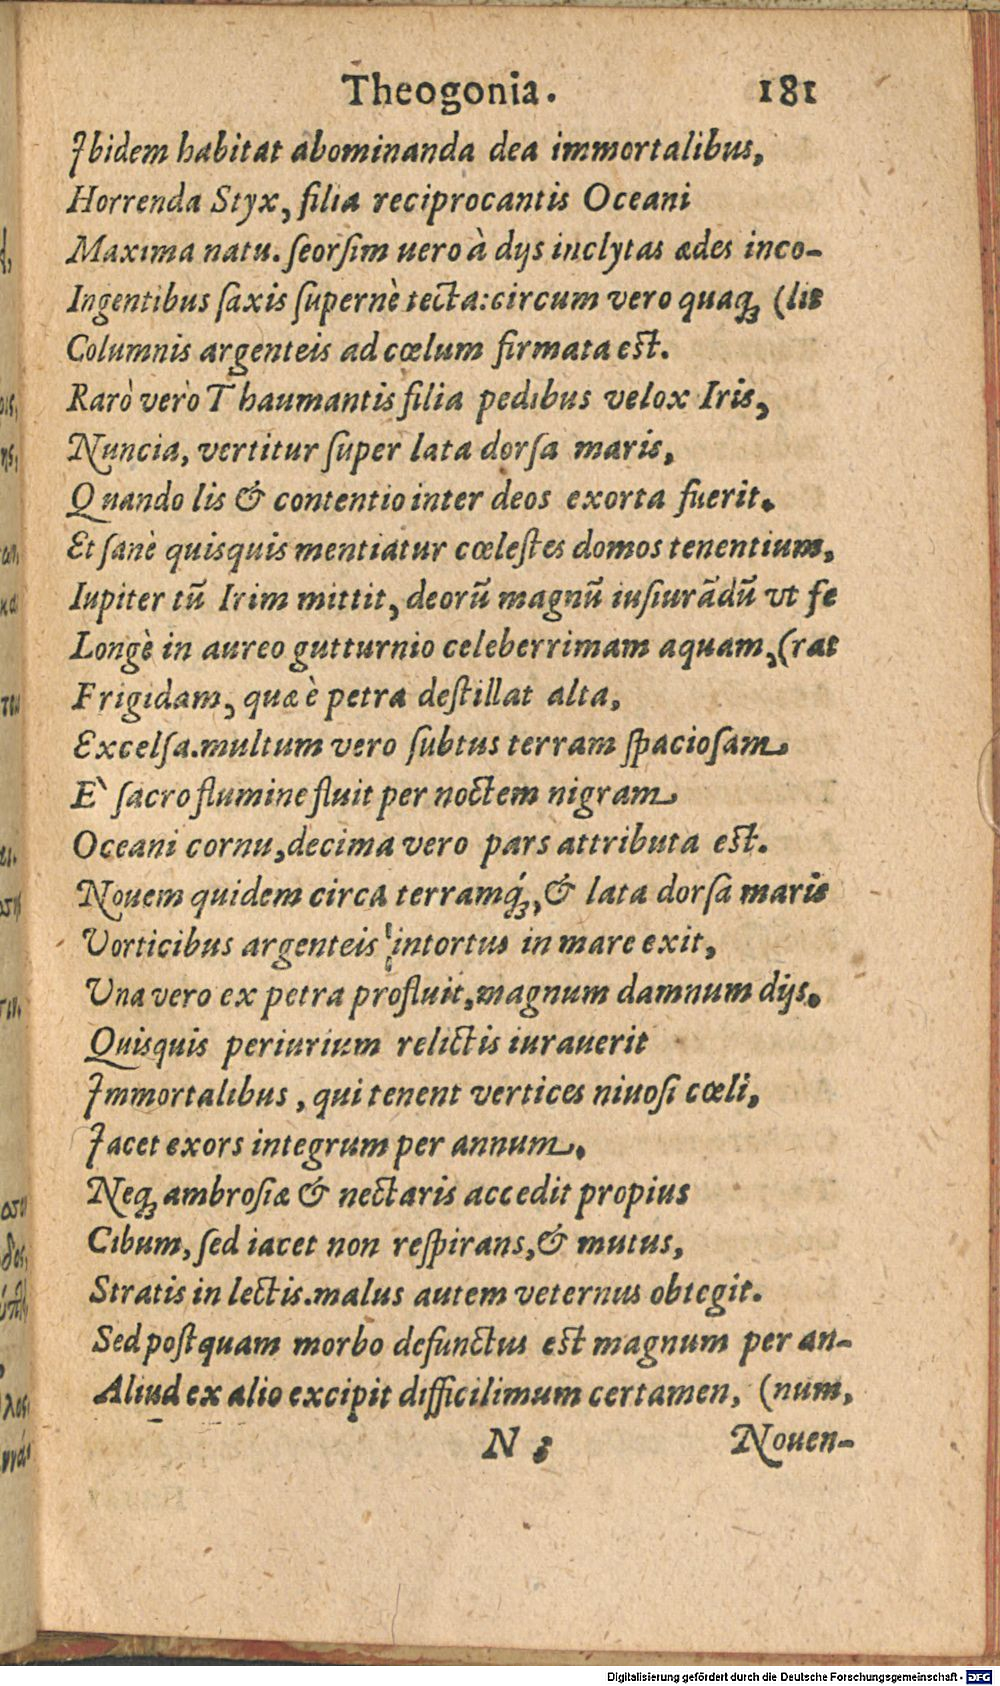 Theogonia. 181
Ibidem habitat abominanda dea immortalibus,
Horrenda Styx, filia reciprocantis Oceani
Maxima natu. ſeorſim uero à dijs inclytas ædes inco-
Ingentibus ſaxis ſupernè tecta: circum vero quaqꝫ (lit
Columnis argenteis ad cœlum firmata eſt.
Rarò verò Thaumantis filia pedibus velox Iris,
Nuncia, vertitur ſuper lata dorſa maris,
Quando lis & contentio inter deos exorta fuerit.
Et ſanè quisquis mentiatur cœleſtes domos tenentium,
Iupiter tū Irim mittit, deorū magnū iuſiurãdū vt fe
Longè in aureo gutturnio celeberrimam aquam, (rat
Frigidam, quæ è petra deſtillat alta,
Excelſa. multum vero ſubtus terram ſpacioſam
E` ſacro flumine fluit per noctem nigram
Oceani cornu, decima vero pars attributa eſt.
Nouem quidem circa terramq́ꝫ, & lata dorſa maris
Vorticibus argenteis intortus in mare exit,
Vna vero ex petra profluit, magnum damnum dijs.
Quisquis periurium relictis iurauerit
Immortalibus, qui tenent vertices niuoſi cœli,
Iacet exors integrum per annum.
Neqꝫ ambroſiæ & nectaris accedit propius
Cibum, ſed iacet non reſpirans, & mutus,
Stratis in lectis. malus autem veternus obtegit.
Sed poſtquam morbo defunctus eſt magnum per an-
Aliud ex alio excipit difficilimum certamen, (num,
N 3 Nouen-
Digitalisierung gefördert durch die Deutsche Forschungsgemeinschaft - DFG